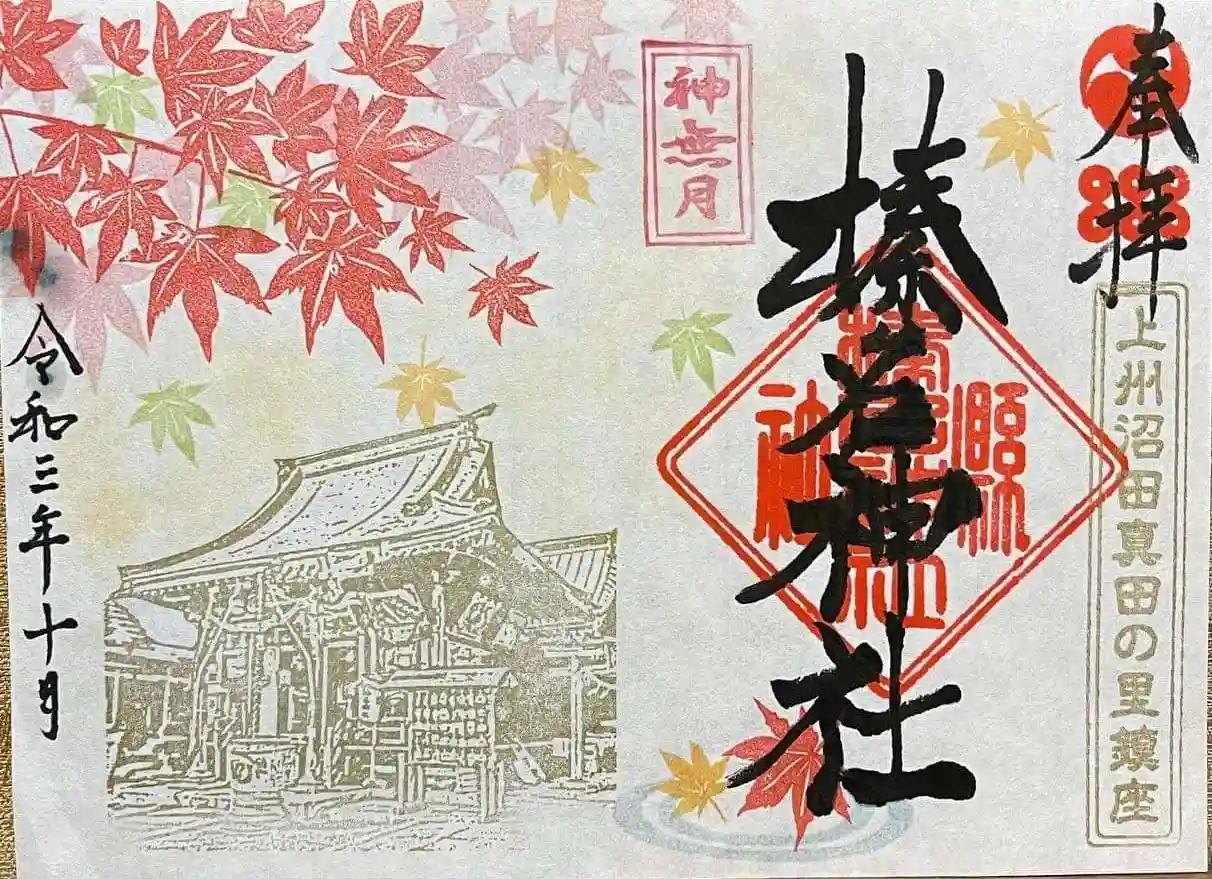 奉拝
上州沼田真田の里鎮座
榛名神社
神無月
令和三年十月